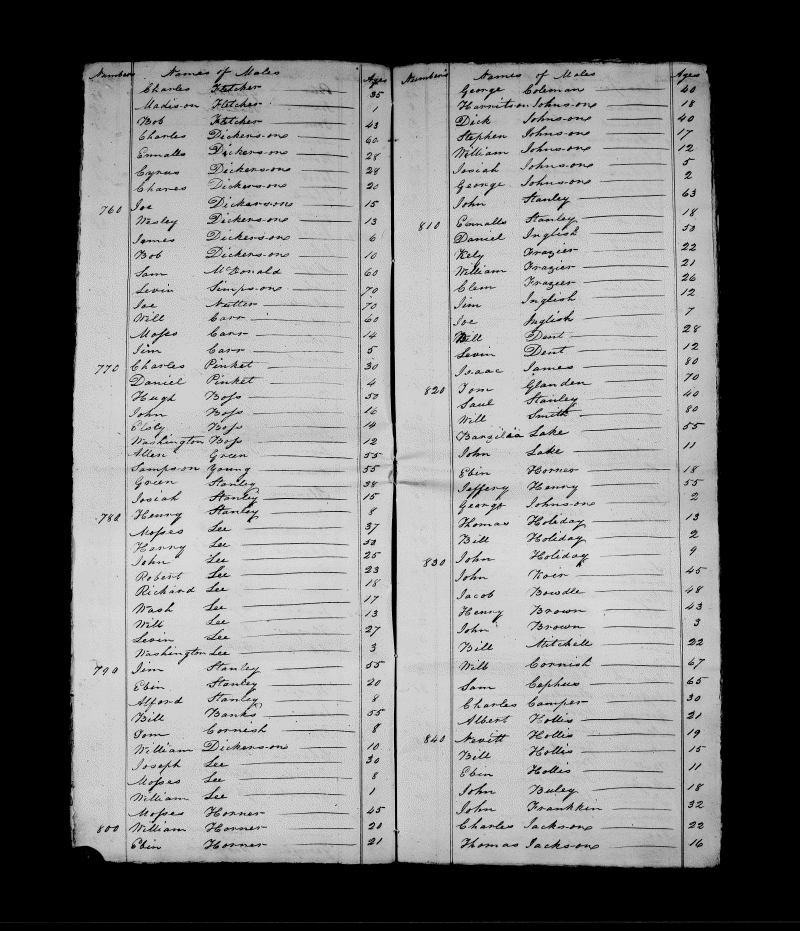 Numbers Names of Males Ages
Charles Fletcher 35
Madison Fletcher 1
Bob Fletcher 43
Charles Dickerson 60
Ennalls Dickerson 28
Cyrus Dickerson 28
Charles Dickerson 20
760 Joe Dickerson 15
Wesley Dickerson 13
James Dickerson 6
Bob Dickerson 10
Sam McDonald 60
Levin Simpson 70
Joe Nutter 70
Will Carr 60
Moses Carr 14
Jim Carr 5
770 Charles Pinket 30
Daniel Pinket 4
Hugh Boss 50
John Boss 16
Elsly Boss 14
Washington Boss 12
Allen Green 55
Sampson Young 55
Green Stanley 38
Josiah Stanley 15
780 Henry Stanley 8
Moses Lee 37
Harry Lee 50
John Lee 25
Robert Lee 23
Richard Lee 18
Wash Lee 17
Will Lee 13
Levin Lee 27
Washington Lee 3
790 Jim Stanley 55
Ebin Stanley 20
Alford Stanley 8
Bill Banks 55
Tom Cornish 8
William Dickerson 10
Joseph Lee 30
Moses Lee 8
William Lee 1
Moses Horner 45
800 William Horner 20
Ebin Horner 21
Numbers Names of Males Ages
George Coleman 40
Harrison Johnson 18
Dick Johnson 40
Stephen Johnson 17
William Johnson 12
Josiah Johnson 5
George Johnson 2
John Stanley 63
810 Ennalls Stanley 18
Daniel Inglish 50
Kely Frazier 22
William Frazier 21
Clem Frazier 26
Jim Inglish 12
Joe Inglish 7
Will Dent 28
Levin Dent 12
Isaac James 80
820 Tom Glanden 70
Saul Stanley 40
Will Smith 80
Barzilia Lake 55
John Lake 11
Ebin Horner 18
Jeffery Henry 55
George Johnson 2
Thomas Holiday 13
Bill Holiday 2
830 John Holiday 9
John Koir 45
Jacob Bowdle 48
Henry Brown 43
John Brown 3
Bill Mitchell 22
Will Cornish 67
Sam Cephus 65
Charles Camper 30
Albert Hollis 21
840 Nevitt Hollis 19
Bill Hollis 15
Ebin Hollis 11
John Buley 18
John Frankkin 32
Charles Jackson 22
Thomas Jackson 16